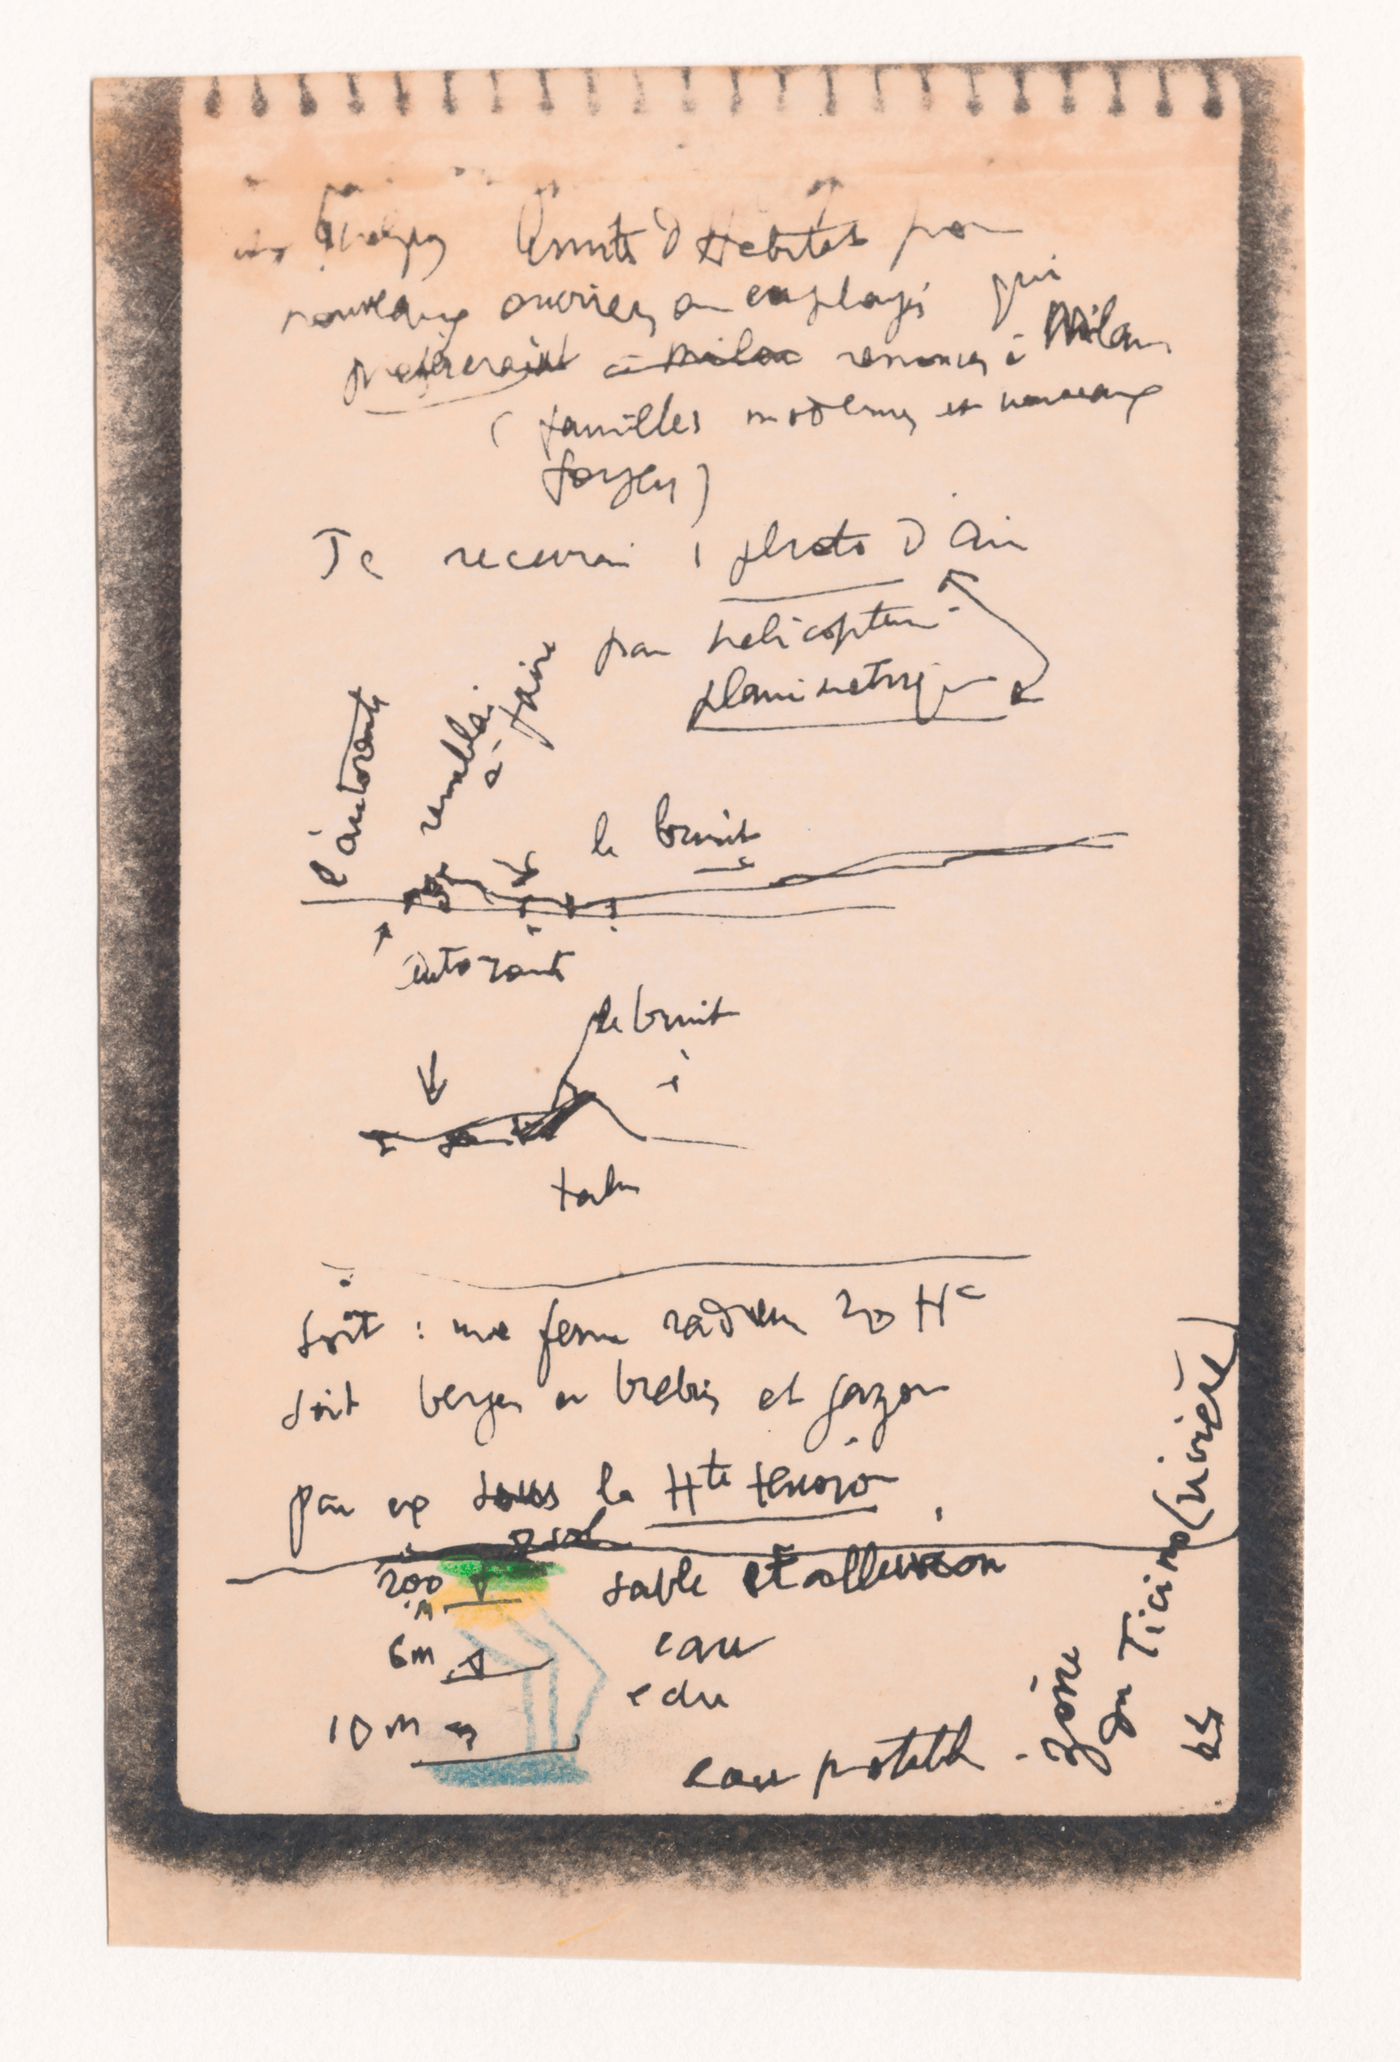 quelques Unités d'Habitat pour
nouveaux ouvriers ou employés qui
préféreraient à Milan renoncer à Milan
(familles modernes et nouveaux
foyers)
Je recevrai 1 photo d'air
par hélicoptère
planimétrique
l'autoroute
remblai
à faire
le bruit
autoroute
le bruit
talus
soit : une ferme radieuse 20 Hc
soit berger en brebis et gazon
par ex sous la Hte tension
sol
200
M
sable et alluvion
6m
eau
eau
10 m
eau potable -
zone
du Ticino (rivière)